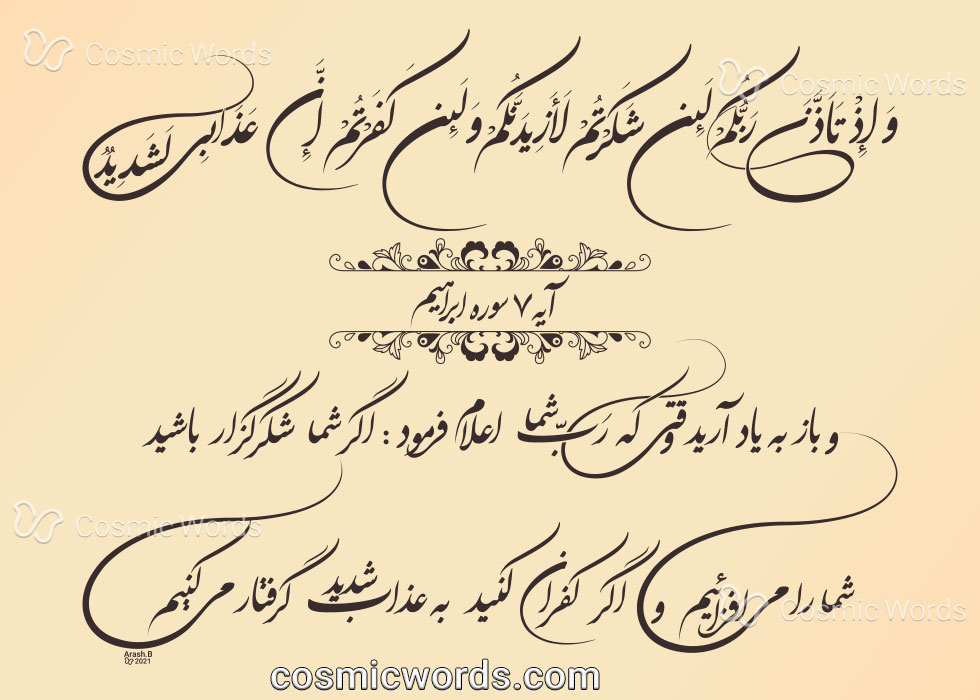 Cosmic Words
Cosmic Words
وَ إِذْ تَأَذَّنَ رَبُّكُمْ لَئِن شَكَرْتُمْ لَأَزِيدَنَّكُمْ وَلَئِن كَفَرْتُمْ إِنَّ عَذَابِي لَشَدِيدٌ
آیه ۷ سوره ابراهیم
و باز به یاد آرید وقتی که رَبّ شما اعلام فرمود : اگر شما شکرگزار باشید
Cosmic Words
شما را می افزائیم و اگر کفران کنید به عذاب شدید گرفتار می کنیم
Cosmic Words
Arash.B
2021
cosmicwords.com